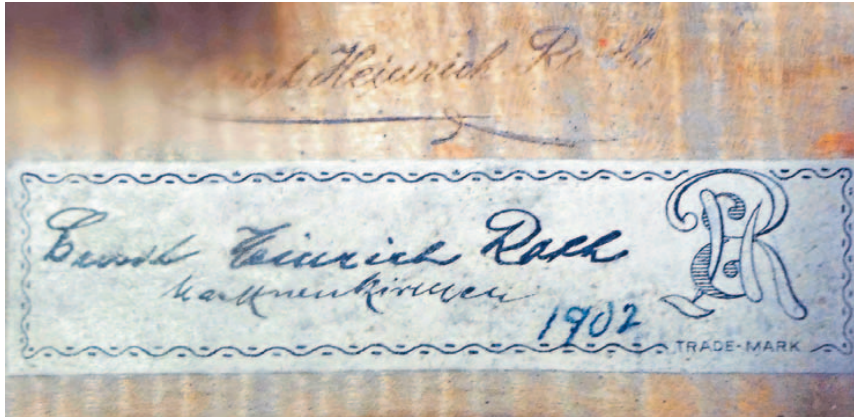 Ernst Heinrich Roth
Ernst Heinrich Roth
Markneukirchen
1902
TRADE-MARK